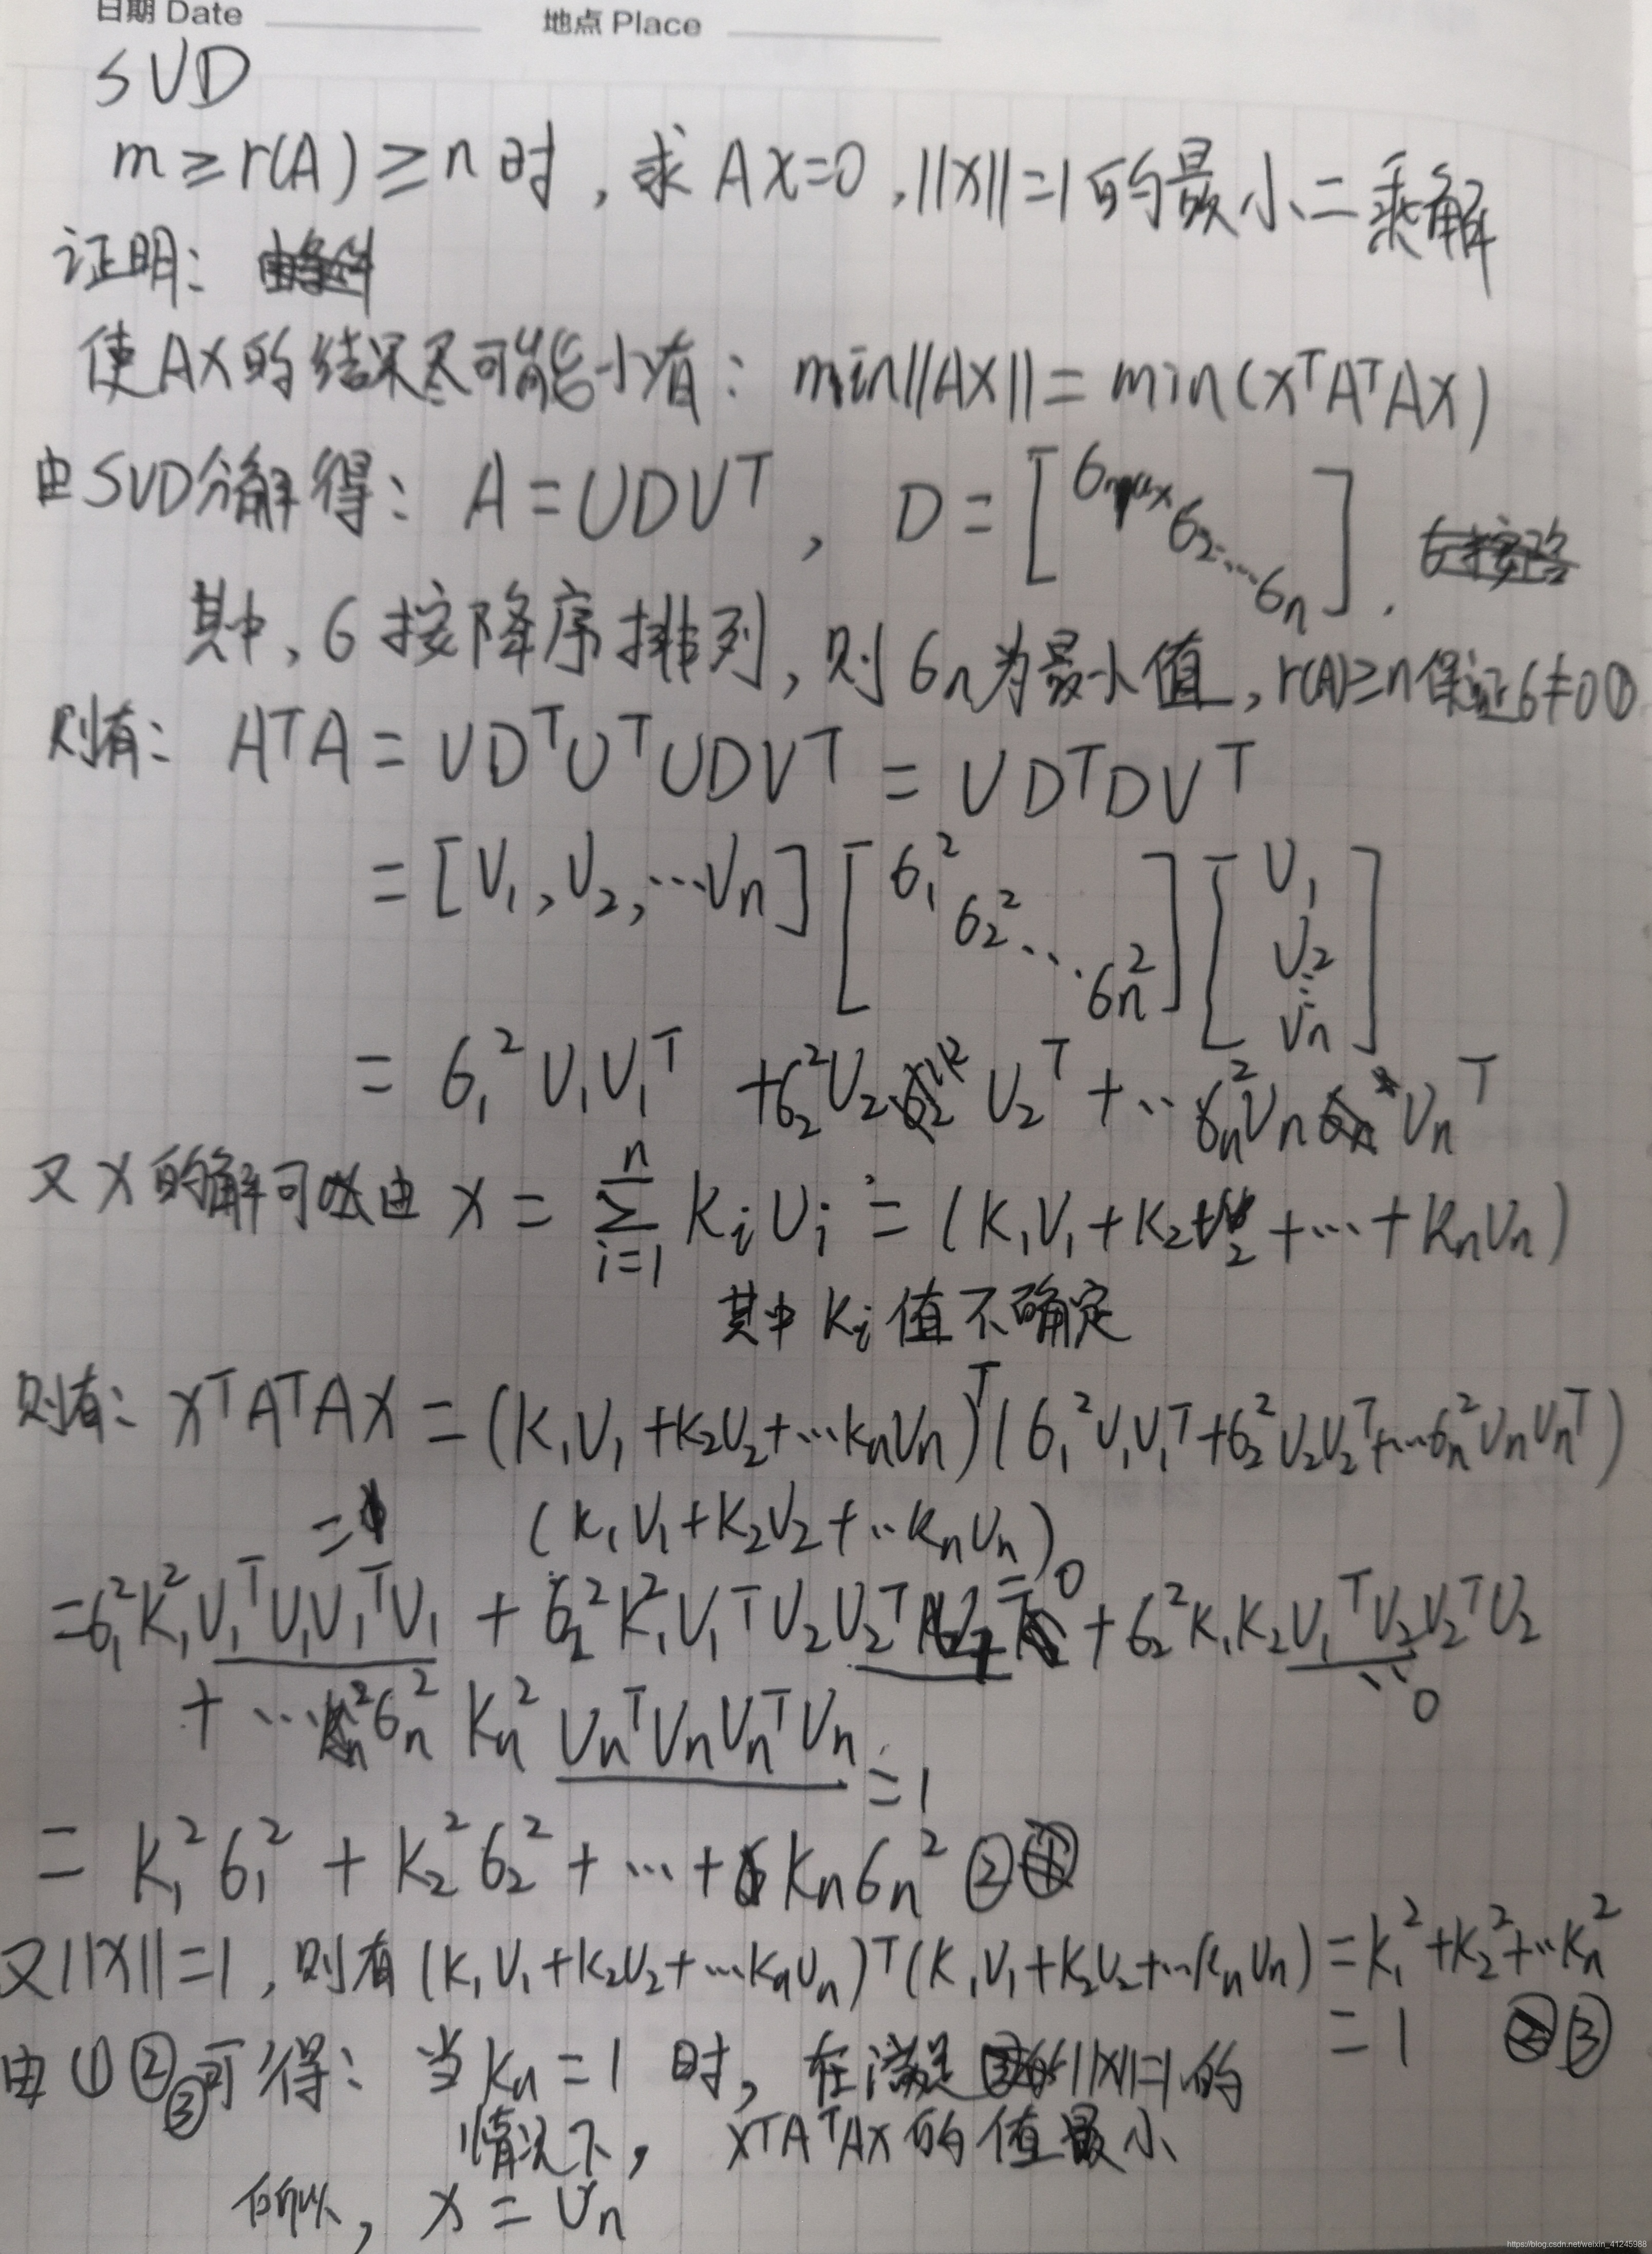 日期 Date 地点 Place
SVD
m ≥ r(A) ≥ n 时, 求 AX=0, ||X||=1 的最小二乘解
证明:
使AX的结果尽可能小有: min||AX|| = min(XᵀAᵀAX)
由SVD分解得: A = UDVᵀ, D = [σmax σ₂ ... σn].
其中, σ 按降序排列, 则 σn为最小值, r(A)≥n保证σ≠0①
则有: AᵀA = VDᵀUᵀUDVᵀ = VDᵀDVᵀ
= [V₁, V₂, ...Vn] [σ₁² σ₂² ... σn²] [V₁ V₂ ⋮ Vn]
= σ₁²V₁V₁ᵀ + σ₂²V₂ V₂ᵀ + ... σn²Vn Vnᵀ
又 X 的解可以由 X = Σ(i=1, n) KᵢVᵢ = (K₁V₁ + K₂V₂ + ... + KnVn)
其中 Kᵢ 值不确定
则有: XᵀAᵀAX = (K₁V₁+K₂V₂+...KnVn)ᵀ(σ₁²V₁V₁ᵀ+σ₂²V₂V₂ᵀ+...σn²VnVnᵀ)
(K₁V₁+K₂V₂+...KnVn)
=1 =0
=σ₁²K₁²V₁ᵀV₁V₁ᵀV₁ + σ₂²K₁²V₁ᵀV₂V₂ᵀV₁ + σ₂²K₁K₂V₁ᵀV₂V₂ᵀV₂
=0
+ ... σn² Kn² VnᵀVnVnᵀVn
=1
= K₁²σ₁² + K₂²σ₂² + ... + Knσn² ②
又||X||=1, 则有(K₁V₁+K₂V₂+...KnVn)ᵀ(K₁V₁+K₂V₂+...KnVn) = K₁²+K₂²+...Kn²
= 1 ③
由①②③可得: 当Kn=1时, 在满足||X||=1的
情况下, XᵀAᵀAX 的值最小
所以, X = Vn
https://blog.csdn.net/weixin_41245988